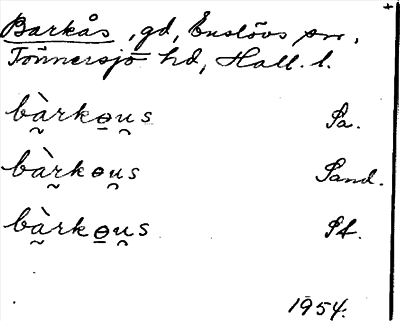 Barkås, gd, Enslövs sn,
Tönnersjö hd, Hall. l.
bàrkɵu̯s Sa.
bàrkɵu̯s Sand.
bàrkɵu̯s St.
1954.